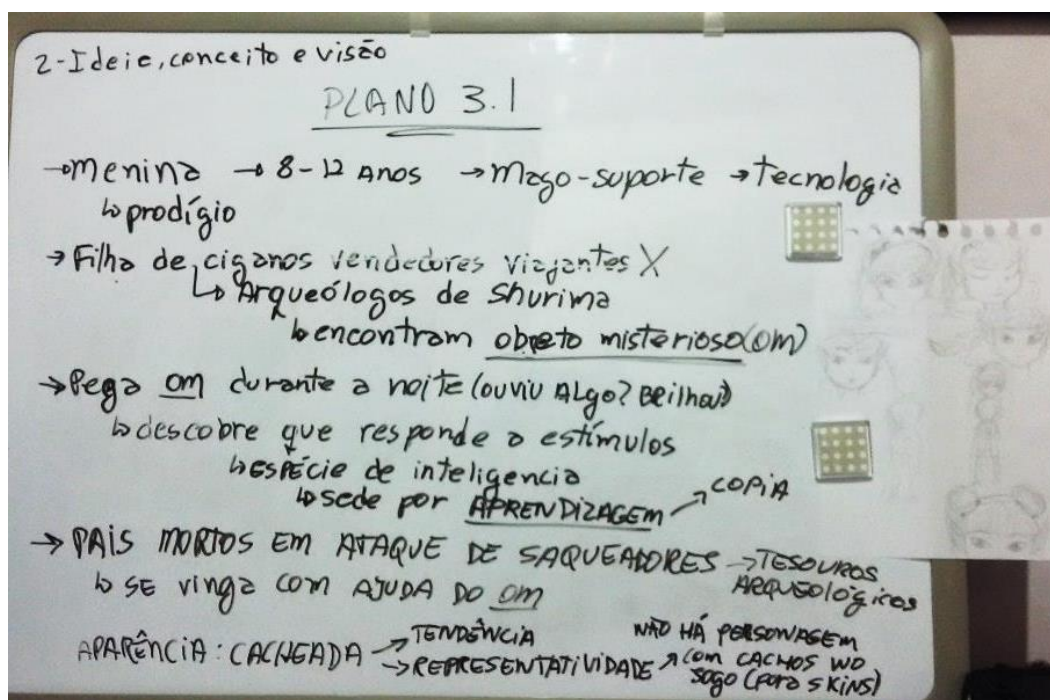 2-Ideia, conceito e visão
PLANO 3.1
→ menina → 8-12 ANOS → mago-suporte → tecnologia
↳ prodígio
→ Filha de ciganos vendedores viajantes X
↳ Arqueólogos de Shurima
↳ encontram objeto misterioso (OM)
→ Pega OM durante a noite (ouviu ALgo? BRilhou?)
↳ descobre que responde a estímulos
↳ ESPÉCIE de inteligencia
↳ sede por APRENDIZAGEM → COPIA
→ PAIS MORTOS EM ATAQUE DE SAQUEADORES → TESOUROS
ARQUEOLógicos
↳ SE vinga com AJUDA DO OM
APARÊNCIA: CACHEADA → TENDÊNCIA
→ REPRESENTATIVIDADE ↗ NÃO HÁ PERSONAGEM
COM CACHOS NO
JOGO (para SKINS)